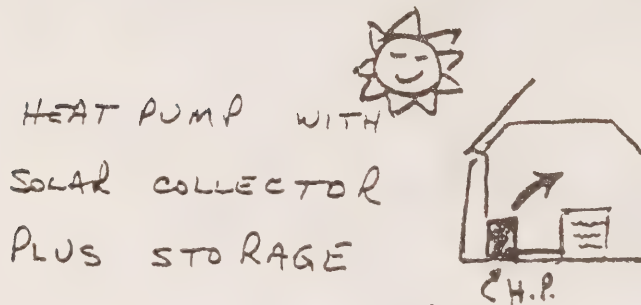 HEAT PUMP WITH
SOLAR COLLECTOR
PLUS STORAGE
H.P.